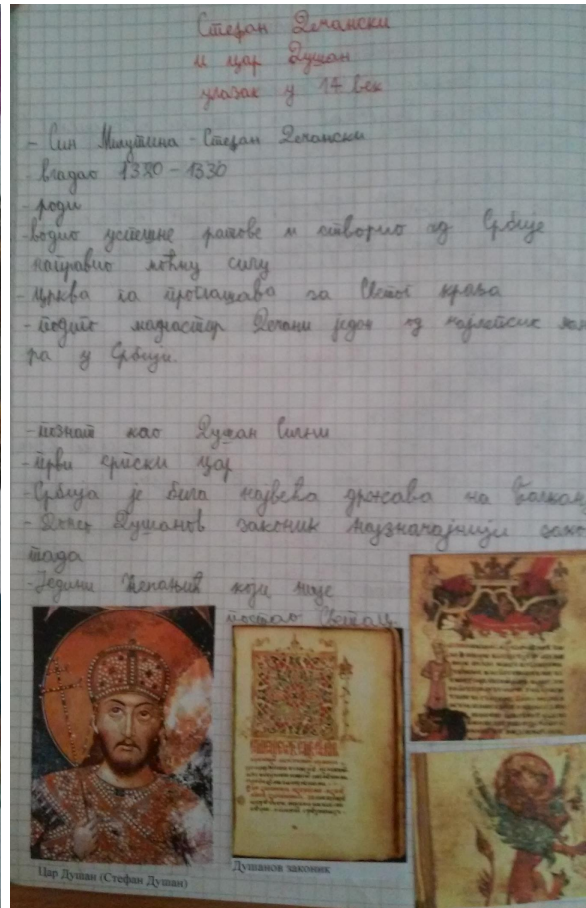 Стефан Дечански
и цар Душан
улазак у 14 век
- Син Милутина - Стефан Дечански
- владао 1320 - 1330
- роди
- водио успешне ратове и створио од Србије
направио моћну силу
- Црква га проглашава за Светог краља
- подиго манастир Дечани један од најлепсих
ра у Србији.
- познат као Душан Силни
- први српски цар
- Србија је била највећа држава на Балкану
- Душанов законик најзначајнији
тада
- Једини Немањић који није
постао Светац.
Цар Душан (Стефан Душан)
Душанов законик